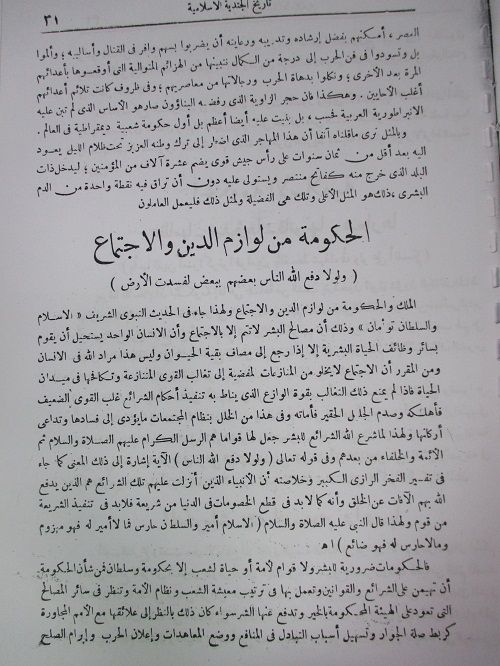 تاريخ الجندية الاسلامية
٣١
العصر ، أمكنهم بفضل إرشاده وتدريبه ورعايته أن يضربوا بسهم وافر فى القتال وأساليبه ؛ وألموا
بل وتسودوا فى فن الحرب إلى درجة من الكمال نتبينها من الهزائم المتوالية التى أوقعوها بأعدائهم
المرة بعد الأخرى ؛ ونكلوا بدهاة الحرب ورجالاتها من معاصريهم ؛ وفى ظروف كانت تلائم أعدائهم
أغلب الأحايين . وهكذا فان حجر الزاوية الذى رفضه البناؤون صار هو الأساس الذى لم تبن عليه
الانبراطورية العربية فحسب ، بل بنيت عليه أيضا أعظم بل أول حكومة شعبية ديمقراطية فى العالم .
وبالمثل نرى مما قلناه آنفا أن هذا المهاجر الذى اضطر إلى ترك وطنه العزيز تحت ظلام الليل يعود
اليه بعد أقل من ثمان سنوات على رأس جيش قوى يضم عشرة آلاف من المؤمنين ؛ ليدخل ذات
البلد الذى خرج منه كفاتح منتصر ويستولى عليه دون أن تراق فيه نقطة واحدة من الدم
البشرى ، ذلك هو المثل الأعلى وتلك هى الفضيلة ولمثل ذلك فليعمل العاملون
الحكومة من لوازم الدين والاجتماع
( ولولا دفع الله الناس بعضهم ببعض لفسدت الأرض )
الملك والحكومة من لوازم الدين والاجتماع ولهذا جاء فى الحديث النبوى الشريف « الاسلام
والسلطان توأمان » وذلك أن مصالح البشر لاتتم إلا بالاجتماع وأن الانسان الواحد يستحيل أن يقوم
بسائر وظائف الحياة البشرية إلا إذا رجع إلى مصاف بقية الحيوان وليس هذا مراد الله فى الانسان
ومن المقرر أن الاجتماع لايخلو من المنازعات المفضية إلى تغالب القوى المتنازعة وتكافحها فى ميدان
الحياة فاذا لم يمنع ذلك التغالب بقوة الوازع الذى يناط به تنفيذ أحكام الشرائع غلب القوى الضعيف
فأهلكه وصدم الجليل الحقير فأماته وفى هذا من الخلل بنظام المجتمعات مايؤدى إلى فسادها وتداعى
أركانها ولهذا لما شرع الله الشرائع للبشر جعل لها قواما هم الرسل الكرام عليهم الصلاة والسلام ثم
الأئمة والخلفاء من بعدهم وفى قوله تعالى ( ولولا دفع الله الناس ) الآية إشارة إلى ذلك المعنى كما جاء
فى تفسير الفخر الرازى الكبير وخلاصته أن الأنبياء الذين أنزلت عليهم تلك الشرائع هم الذين يدفع
الله بهم الآفات عن الخلق وأنه كما لابد فى قطع الخصومات فى الدنيا من شريعة فلابد فى تنفيذ الشريعة
من قوم ولهذا قال النبى عليه الصلاة والسلام ( الاسلام أمير والسلطان حارس فما لاأمير له فهو مهزوم
ومالاحارس له فهو ضائع ) اه
فالحكومات ضرورية للبشر ولا قوام لأمة أو حياة لشعب إلا بحكومة وسلطان فمن شأن الحكومة
أن تهيمن على الشرائع والقوانين وتعمل بها فى ترتيب معيشة الشعب ونظام الأمة وتنظر فى سائر المصالح
التى تعود على الهيئة المحكومة بالخير وتدفع عنها الشر سواء كان ذلك بالنظر إلى علائقها مع الأمم المجاورة
كربط صلة الجوار وتسهيل أسباب التبادل فى المنافع ووضع المعاهدات وإعلان الحرب وإبرام الصلح